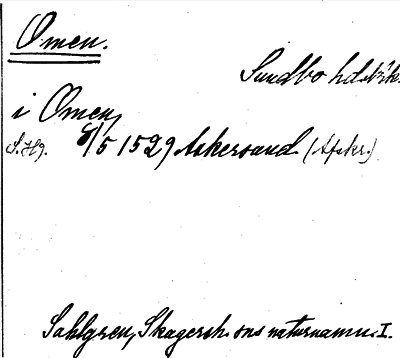 Omen.
Sundbo hd. Örk.
i Omen,
S. Hg. 8/5 1529 Askersund (Afskr.)
Sahlgren, Skagersh. sns naturnamn. I.